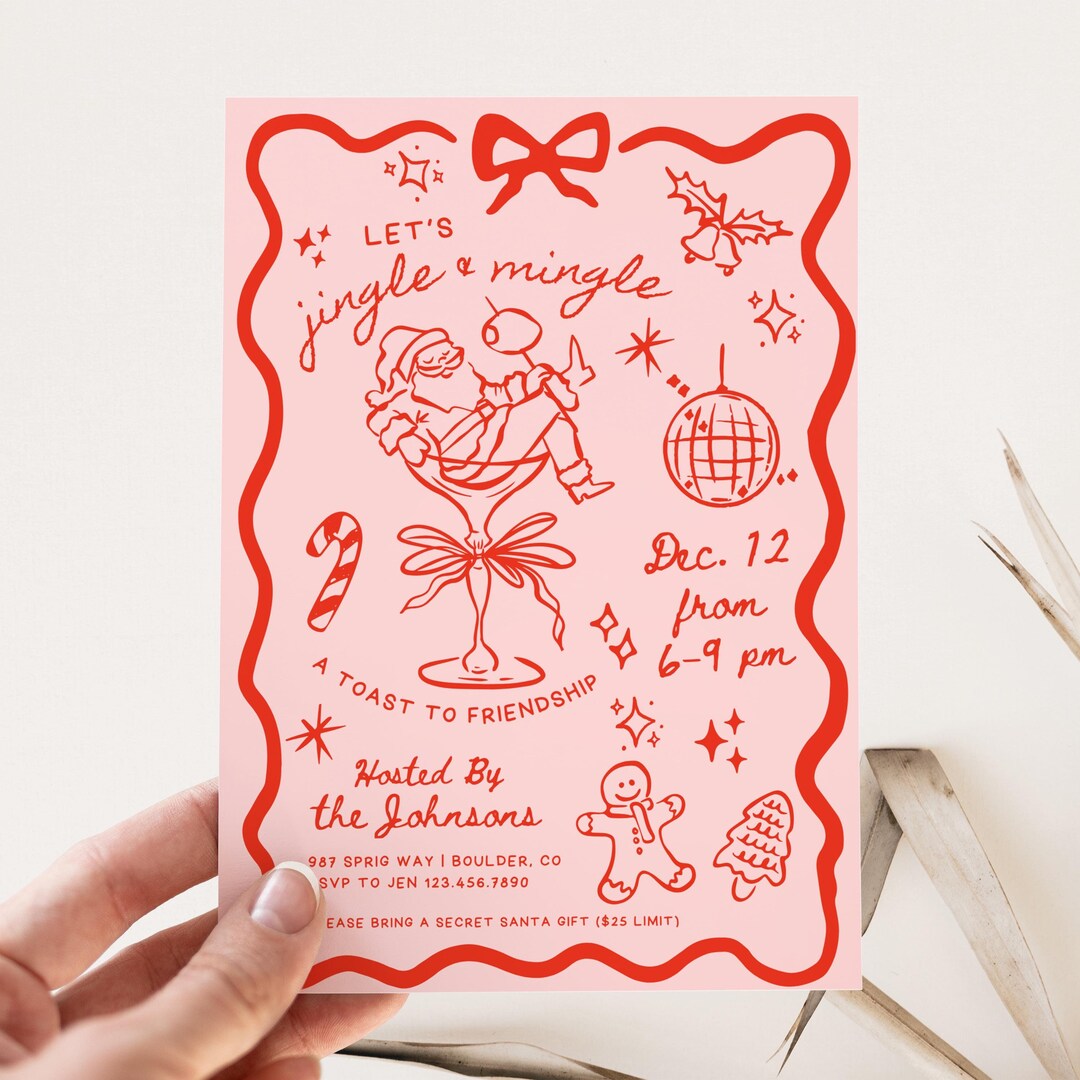 LET'S
jingle & mingle
Dec. 12
from
6-9 pm
A TOAST TO FRIENDSHIP
Hosted By
the Johnsons
987 SPRIG WAY | BOULDER, CO
SVP TO JEN 123.456.7890
EASE BRING A SECRET SANTA GIFT ($25 LIMIT)